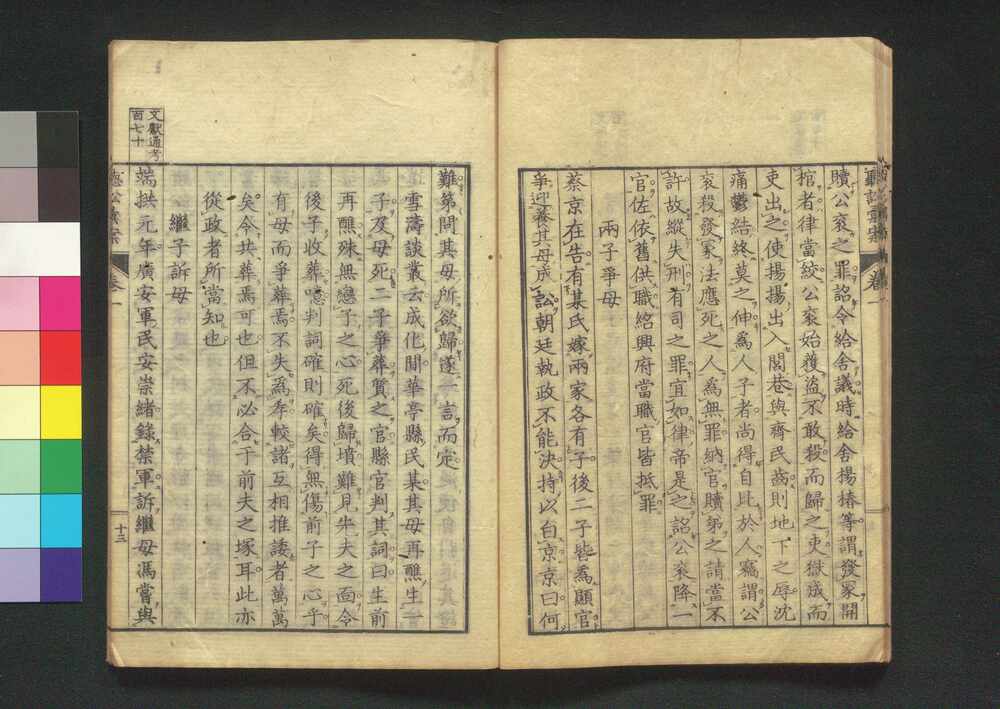 贖公袞之罪詔令給舍議時給舍揚椿等謂發冢開
棺者律當絞公袞始獲盜不敢殺而歸之吏獄成而
吏出之使揚揚出入閭巷與齊民齒則地下之辱沈
痛鬱結終莫之伸為人子者尚得自比於人竊謂公
袞殺發冢法應死之人為無罪納官贖弟之請當不
許故縱失刑有司之罪宜如律帝是之詔公袞降一
官佐依舊供職紹興府當職官皆抵罪
兩子爭母
蔡京在告有某氏嫁兩家各有子後二子皆為顯官
爭迎養其母成訟朝廷執政不能決持以白京京曰何
難第問其母所欲歸遂一言而定
雪濤談叢云成化間華亭縣民某其母再醮生一
子及母死二子爭葬質之官縣官判其詞曰生前
再醮殊無戀子之心死後歸墳難見先夫之面令
後子收葬噫判詞確則確矣得無傷前子之心乎
有母而爭葬焉不失為孝較諸互相推諉者萬萬
矣令共葬焉可也但不必合于前夫之塚耳此亦
從政者所當知也
繼子訴母
文獻通考
百七十
端拱元年廣安軍民安崇緒錄禁軍訴繼母馮嘗與
卷一
十三